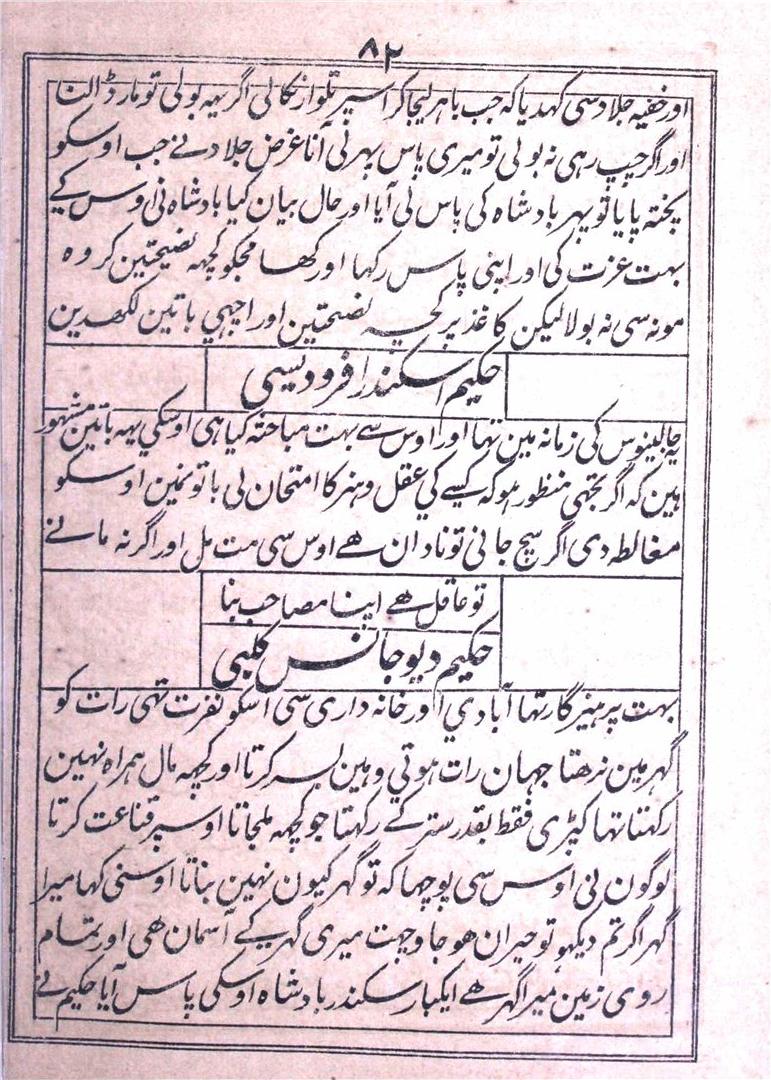 ۸۲
اور خفیہ جلاد سی کہدیا کہ جب باہر لیجا کر اسپر تلوار نکالی اگر یہہ بولی تو مار ڈالنا
اور اگر چپ رہی نہ بولی تو میری پاس پہر نی آنا غرض جلاد نے جب اوسکو
پختہ پایا تو پہر بادشاہ کی پاس لی آیا اور حال بیان کیا بادشاہ نی اوس کے
بہت عزت کی اور اپنی پاس رکہا اور کھا مجکو کچہہ نصیحتین کر وہ
مونہ سی نہ بولا لیکن کاغذ پر کچہہ نصیحتین اور اچہی باتین لکھدین
حکیم اسکندر افرودیسی
یہ جالینوس کی زمانہ مین تہا اور اوس سے بہت مباحثہ کیا ہی اوسکی یہہ باتین مشہور
ہین کہ اگر تجھی منظور ہو کہ کیسے کی عقل و ہنر کا امتحان لی باتو نمین اوسکو
مغالطہ دی اگر سچ جانی تو نادان ھے اوس سی مت مل اور اگر نہ مانے
تو عاقل ھے اپنا مصاحب بنا
حکیم دیوجانس کلبی
بہت پرہیزگار تہا آبادی اور خانہ داری سی اسکو نفرت تہی رات کو
گہر مین نرھتا جہان رات ہوتی وہین بسر کرتا اور کچہہ مال ہمراہ نہین
رکہتا تہا کپڑی فقط بقدر ستر کے رکہتا جو کچہہ ملجاتا اوسپر قناعت کرتا
لوگون نی اوس سی پوچہا کہ تو گہر کیون نہین بناتا اوسنی کہا میرا
گہر اگر تم دیکہو تو حیران ھو جاو چہت میری گہر کے آسمان ھی اور تمام
روی زمین میرا گہر ھے ایکبار سکندر بادشاہ اوسکی پاس آیا حکیم نے